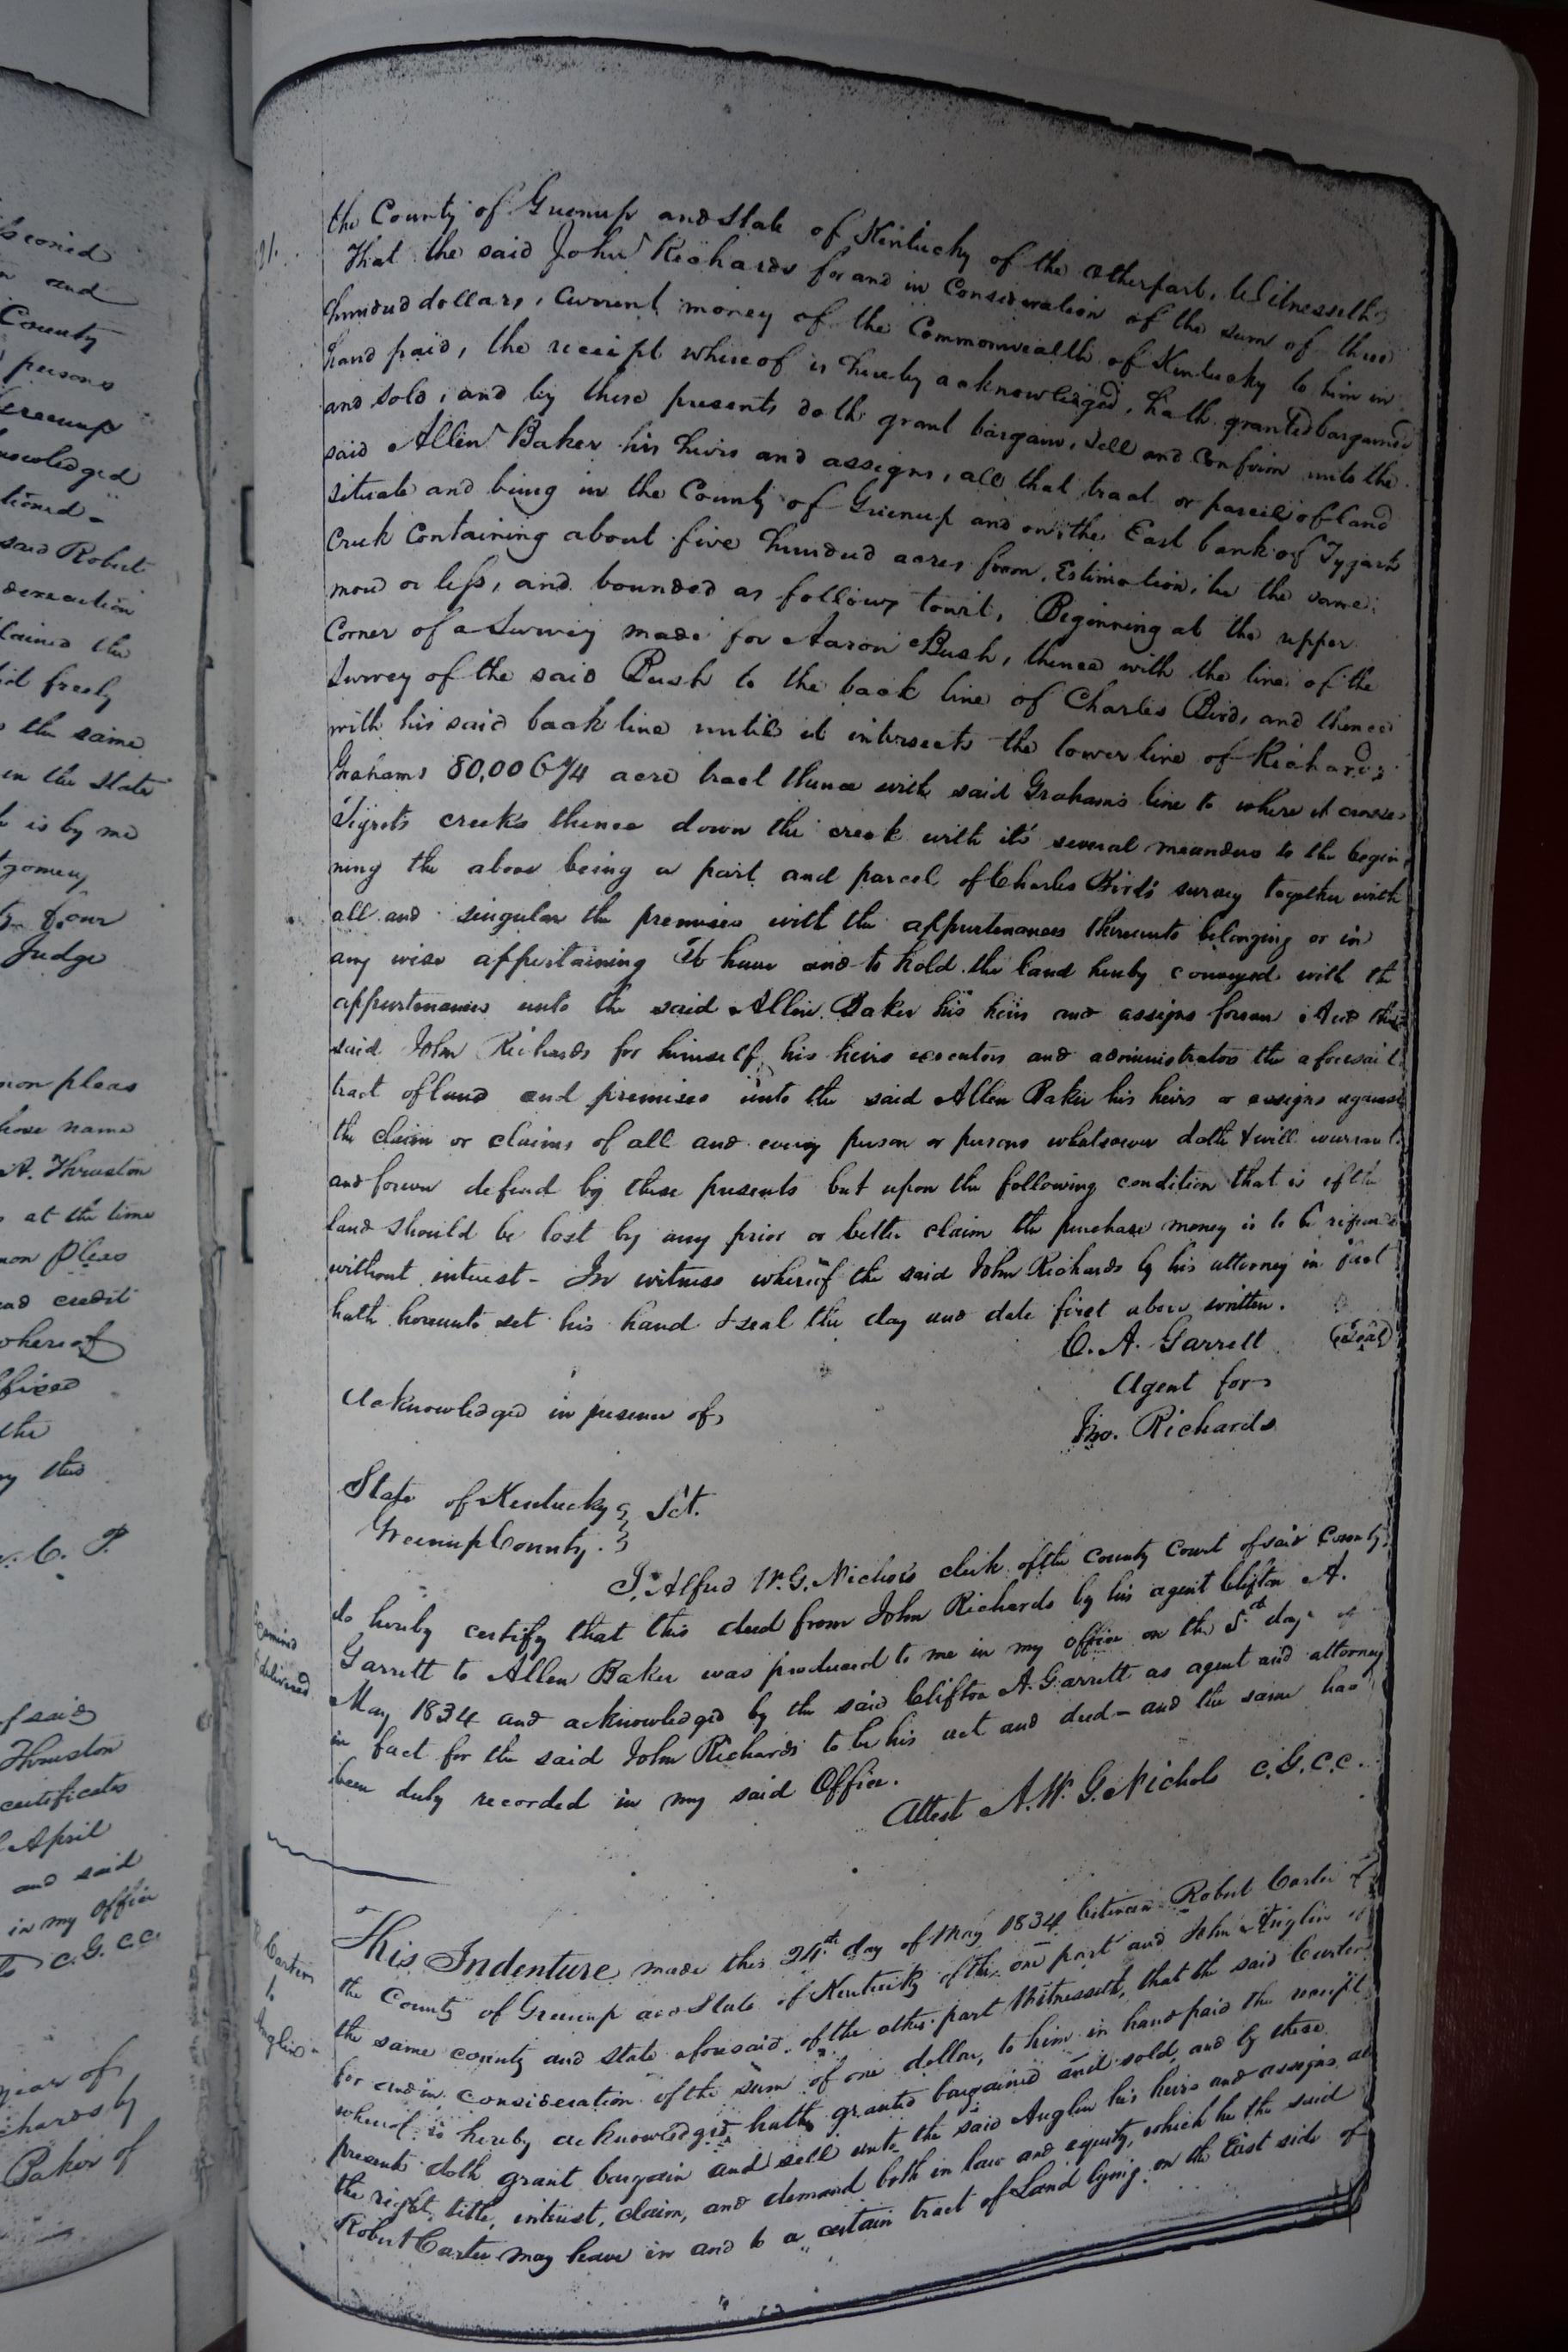 the County of Greenup and State of Kentucky of the other part, Witnesseth
That the said John Richards for and in Consideration of the sum of three
hundred dollars, Current money of the Commonwealth of Kentucky to him in
hand paid, the receipt whereof is hereby acknowledged, hath granted bargained
and sold, and by these presents doth grant bargain, sell and Confirm unto the
said Allen Baker his heirs and assigns, all that tract or parcel of land
situate and being in the County of Greenup and on the East bank of Tygarts
Creek Containing about five hundred acres from Estimation, be the same
more or less, and bounded as follows towit, Beginning at the upper
Corner of a Survey made for Aaron Bush, thence with the line of the
Survey of the said Bush to the back line of Charles Bird, and thence
with his said back line until it intersects the lower line of Richard
Grahams acre tract thence with said Grahams line to where it crosses
Tygrets creek thence down the creek with its several meanders to the begin
ning the above being a part and parcel of Charles Bird's survey together with
all and singular the premises with the appurtenances thereunto belonging or in
any wise appertaining To have and to hold the land hereby conveyed with the
appurtenances unto the said Allen Baker his heirs and assigns forever And the
said John Richards for himself his heirs executors and administrators the aforesaid
tract of land and premises unto the said Allen Baker his heirs or assigns against
the claim or claims of all and every person or persons whatsoever doth & will warrant
and forever defend by these presents but upon the following condition that is if the
land should be lost by any prior or better claim the purchase money is to be
without interest - In witness whereof the said John Richards by his attorney in fact
hath hereunto set his hand & seal the day and date first above written.
C. A. Garrett (Seal)
Agent for
Jno. Richards
Acknowledged in presence of
State of Kentucky } Sct.
Greenup County. }
I, Alfred W. G. Nichols clerk of the County Court of said County
do hereby certify that this deed from John Richards by his agent Clifton A.
Garrett to Allen Baker was produced to me in my office on the 5th day of
May 1834 and acknowledged by the said Clifton A. Garrett as agent and attorney
in fact for the said John Richards to be his act and deed - and the same has
been duly recorded in my said Office.
Attest A. W. G. Nichols C.G.C.C.
delivered
Carter
to
Anglin
This Indenture made this 24th day of May 1834 between Robert Carter of
the County of Greenup and State of Kentucky of the one part and John Anglin of
the same county and State aforesaid of the other part Witnesseth, that the said Carter
for and in consideration of the sum of one dollar, to him in hand paid the receipt
whereof is hereby acknowledged hath granted bargained and sold and by these
presents doth grant bargain and sell unto the said Anglin his heirs and assigns all
the right, title, interest, claim, and demand both in law and equity, which he the said
Robert Carter may have in and to a certain tract of Land lying on the East side of
and
County
persons
said Robert
the same
in the State
is by me
Judge
A. Thruston
at the time
credit
whereof
the
C. P.
of said
Thruston
certificates
April
and said
in my Office
C.G.C.C.
year of
Baker of